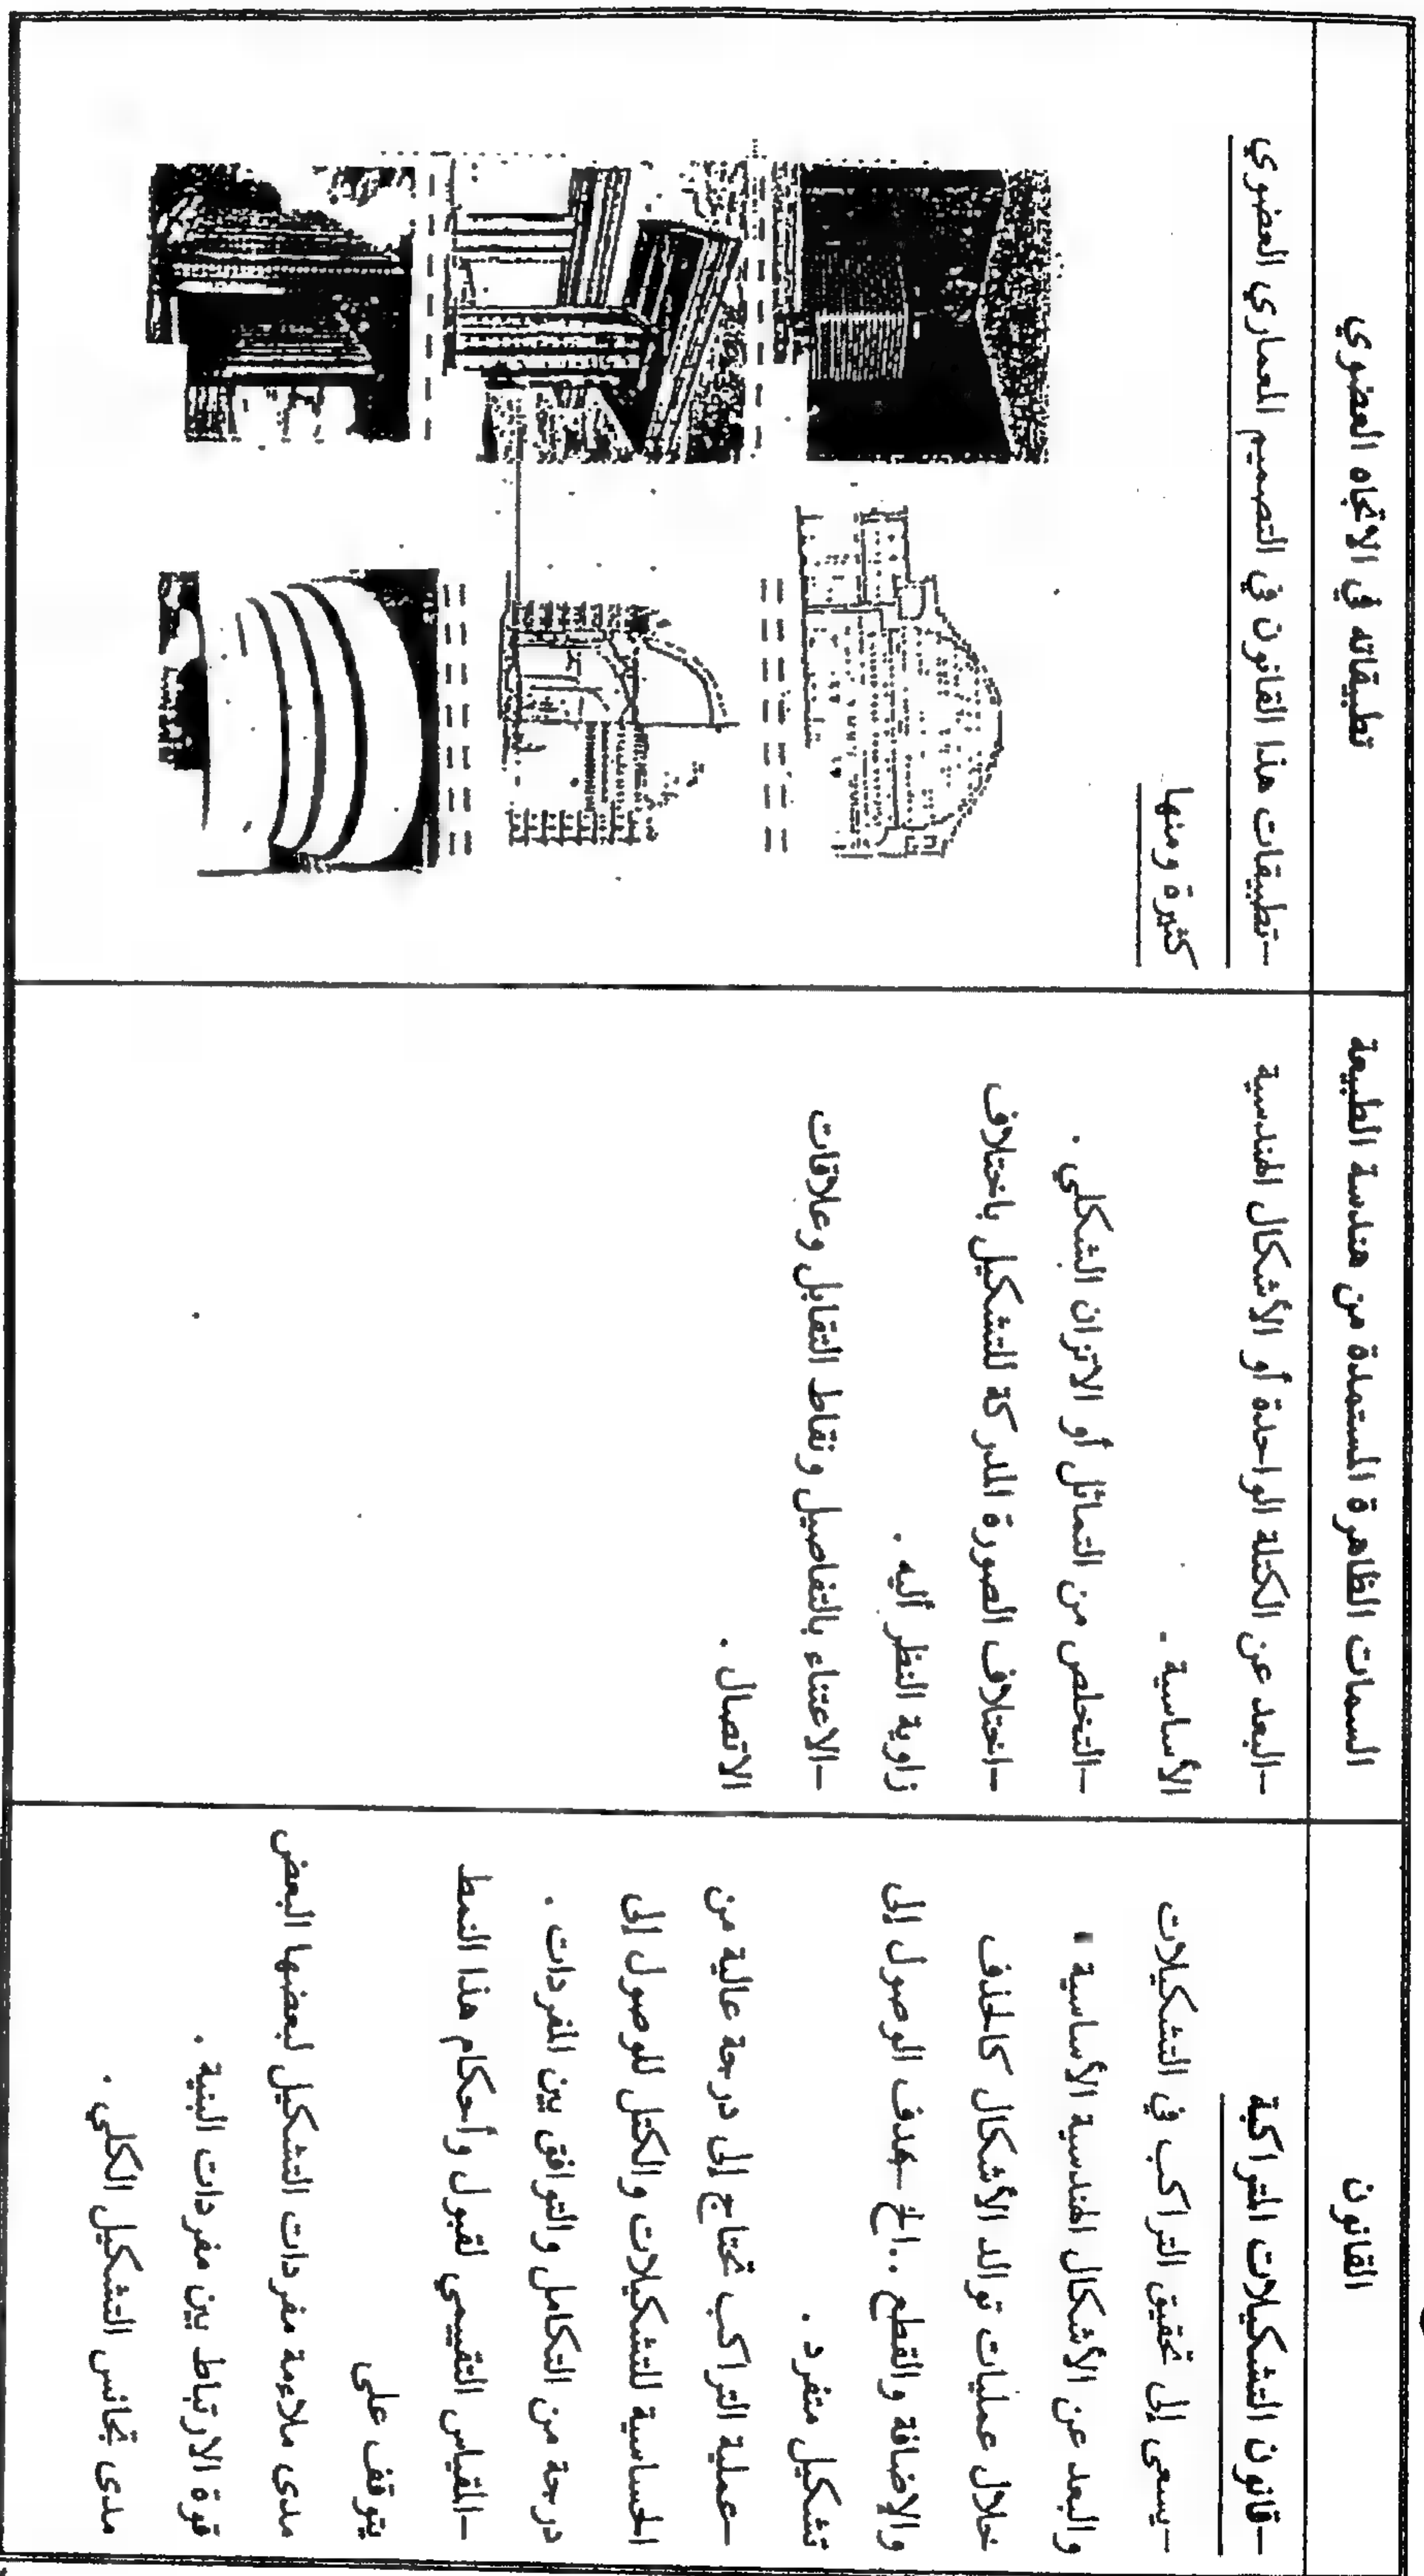 القانون
السمات الظاهرة المستمدة من هندسة الطبيعة
تطبيقاته في الاتجاه العضوي
-قانون التشكيلات المتراكبة
-يسعى إلى تحقيق التراكب في التشكيلات
والبعد عن الأشكال الهندسية الأساسية .
خلال عمليات توالد الأشكال كالحذف
والإضافة والقطع ..الخ -بهدف الوصول إلى
تشكيل متفرد .
-عملية التراكب تحتاج إلى درجة عالية من
الحساسية للتشكيلات والكتل للوصول إلى
درجة من التكامل والتوافق بين المفردات .
-القياس التقييمي لقبول وأحكام هذا النمط
يتوقف على
مدى ملاءمة مفردات التشكيل لبعضها البعض
قوة الارتباط بين مفردات البنية .
مدى تجانس التشكيل الكلي .
-البعد عن الكتلة الواحدة أو الأشكال الهندسية
الأساسية .
-التخلص من التماثل أو الاتزان الشكلي .
-اختلاف الصورة المدركة للتشكيل باختلاف
زاوية النظر أليه .
-الاعتناء بالتفاصيل ونقاط التقابل وعلاقات
الاتصال .
-تطبيقات هذا القانون في التصميم المعماري العضوي
كثيرة ومنها